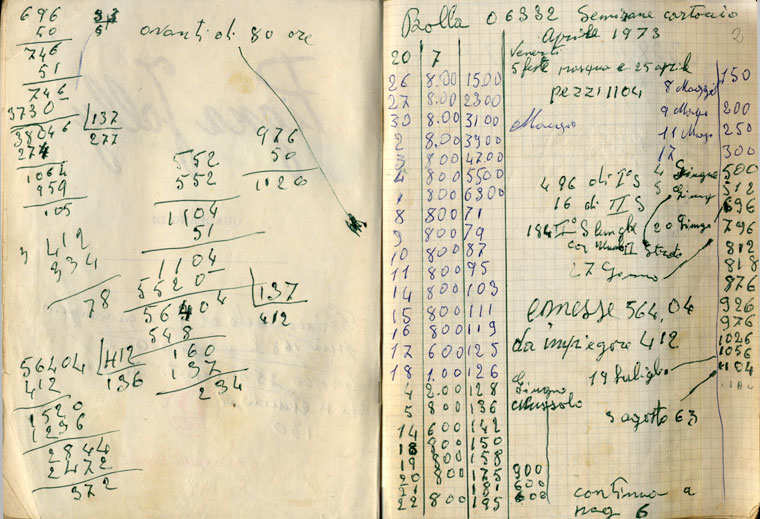 696
50
746
51
746
3730
38046 137
274 277
1064
959
105
avanti di 80 ore
976
50
1120
552
552
1104
51
1104
5520
56404 137
548 412
160
137
234
412
334
78
56404 412
412 136
1520
1236
2844
2472
372
Bolla 06332 Semirane cartoccio
Aprile 1973 2
20 7 Venerdì
5 feste pasqua e 25 aprile
pezzi 1104
26 8.00 1500
27 8.00 2300
30 8.00 3100 Maggio
2 8.00 3900
3 800 4700
4 800 5500
8 800 6300
8 800 71
9 800 79
10 800 87
11 800 95
14 800 103
15 800 111
16 800 119
17 600 125
18 1.00 126
4 2.00 128 Giugno
5 800 136
14 600 142
800 150
19 800 158
20 800 175 900
22 800 195 600
8 Maggio 150
9 Mago 200
11 Mago 250
17 300
4 Giugno 500
5 Giung 512
696
20 Giungo 796
812
818
876
926
976
1026
1056
1104
496 di I°S
16 di II S
184 I° S lunghe
27
emesse 564,04
da impiegore 412
19 Luliglio
3 agosto 63
continua a
pag 6